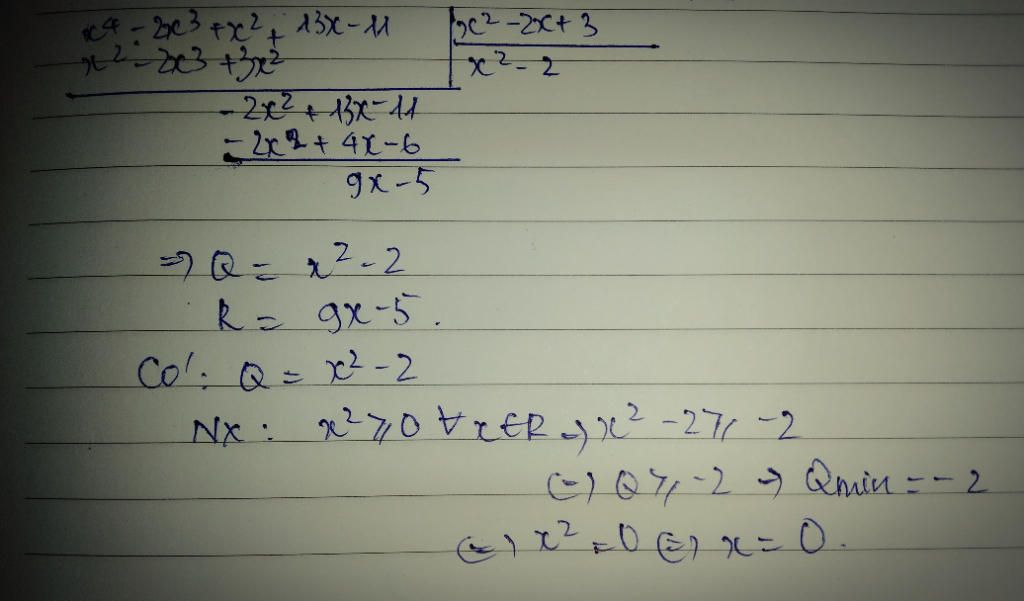 x⁴ - 2x³ + x² + 13x - 11 | x² - 2x + 3
x² - 2x³ + 3x² | x² - 2
- 2x² + 13x - 11
- 2x² + 4x - 6
9x - 5
=> Q = x² - 2
R = 9x - 5.
Có: Q = x² - 2
Nx: x² ⩾ 0 ∀ x ∈ R => x² - 2 ⩾ -2
(=) Q ⩾ -2 => Qmin = -2
(=) x² = 0 (=) x = 0.